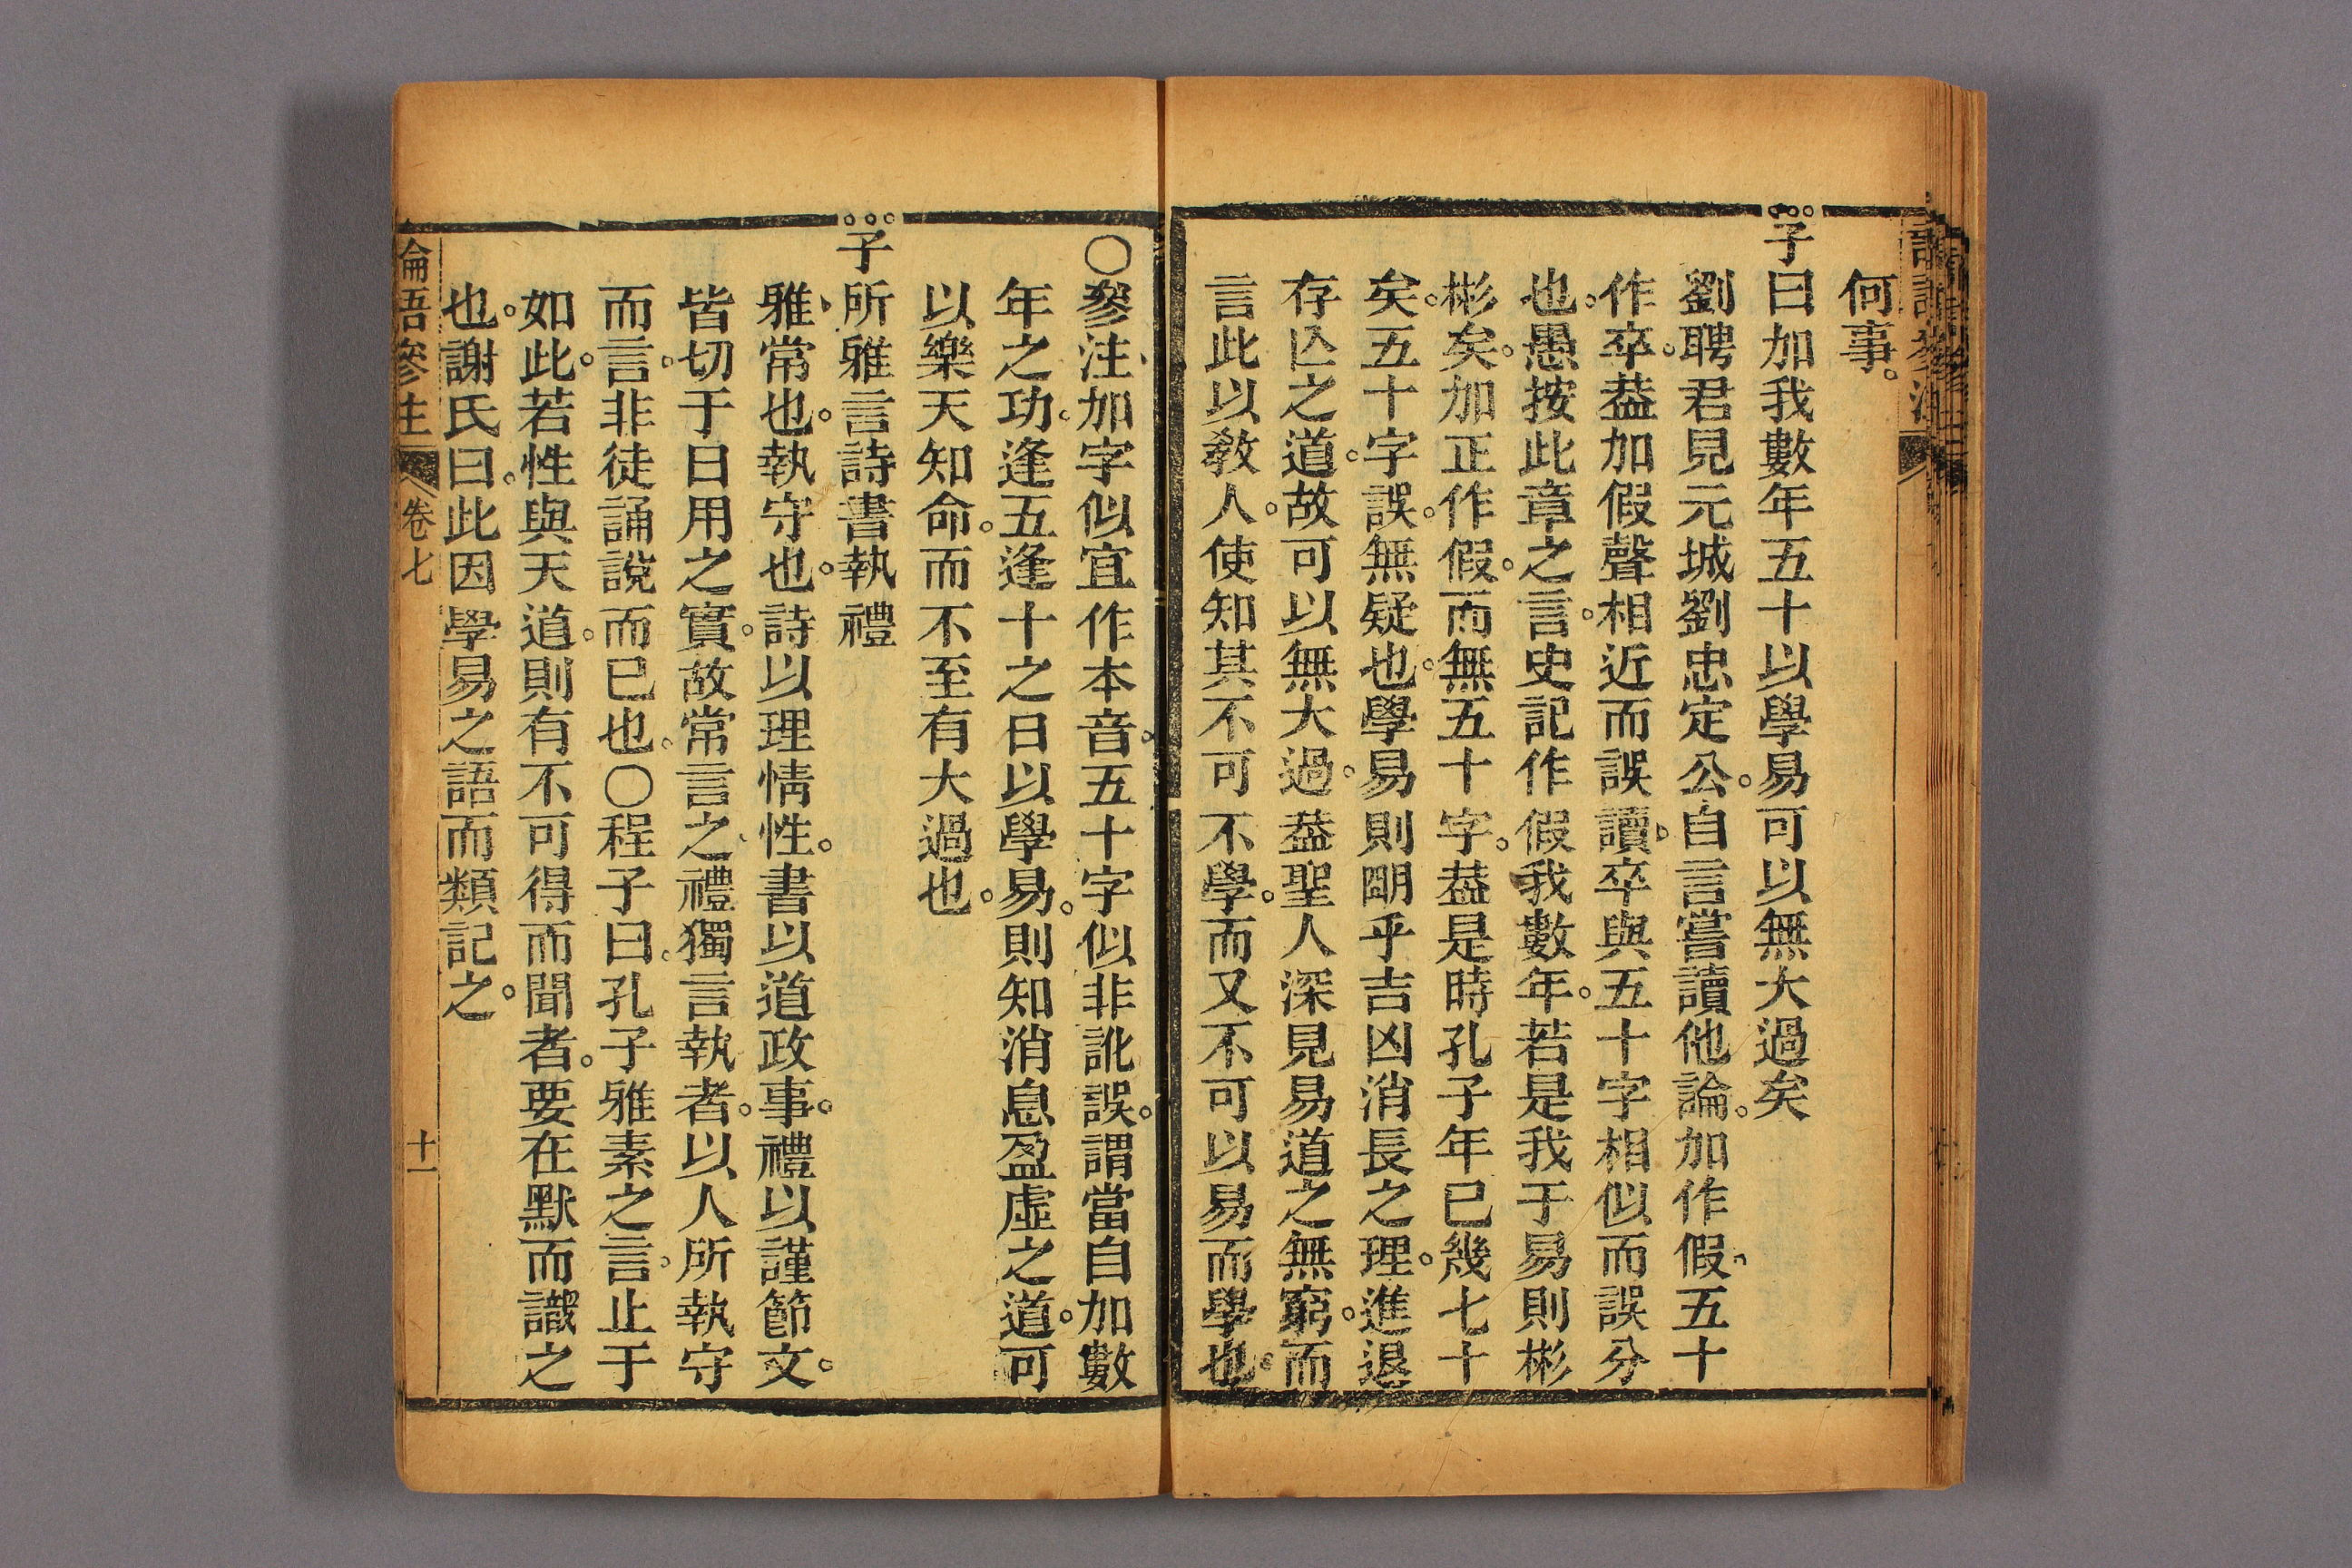 何事。
子曰加我數年五十以學易可以無大過矣
劉聘君見元城劉忠定公。自言嘗讀他論。加作假。五十
作卒。葢加假聲相近而誤讀。卒與五十字相似而誤分
也。愚按此章之言。史記作假我數年。若是我于易則彬
彬矣。加正作假。而無五十字。葢是時孔子年已幾七十
矣。五十字誤。無疑也。學易則明乎吉凶消長之理。進退
存亾之道。故可以無大過。葢聖人深見易道之無窮。而
言此以敎人。使知其不可不學。而又不可以易而學也。
〇叅注、加字似宜作本音。五十字似非訛誤。謂當自加數
年之功。逢五逢十之日以學易。則知消息盈虛之道。可
以樂天知命。而不至有大過也。
子所雅言詩書執禮
雅、常也。執守也。詩以理情性。書以道政事。禮以謹節文。
皆切于日用之實。故常言之、禮獨言執者。以人所執守
而言。非徒誦說而已也。〇程子曰。孔子雅素之言。止于
如此。若性與天道。則有不可得而聞者。要在默而識之
也。謝氏曰。此因學易之語而類記之。
卷七
十一